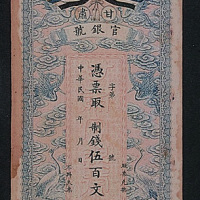 甘肅
官銀號
字第 號
憑票取 制錢伍百文
中華民國 年 月 日